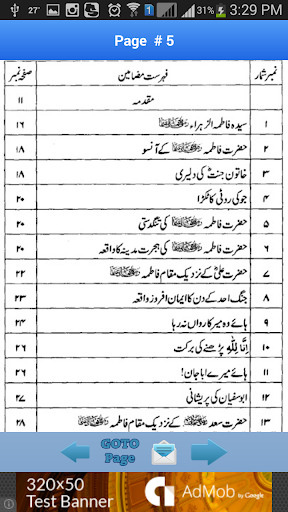 27°
31%
3:29 PM
Page # 5
نمبر شمار فہرست مضامین صفحہ نمبر
مقدمہ ۱۱
۱ سیدہ فاطمۃ الزہراء ۱۶
۲ حضرت فاطمہ کے آنسو ۱۸
۳ خاتون جنت کی دلیری ۱۸
۴ جو کی روٹی کا ٹکڑا ۲۰
۵ حضرت فاطمہ کی تنگدستی ۲۰
۶ حضرت فاطمہ کی ہجرت مدینہ کا واقعہ ۲۰
۷ حضرت علی کے نزدیک مقام فاطمہ ۲۲
۸ جنگ احد کے دن کا ایمان افروز واقعہ ۲۲
۹ ہائے وہ میر کارواں نہ رہا ۲۴
۱۰ اِنَّا لِلّٰهِ پڑھنے کی برکت ۲۶
۱۱ ہائے میرے ابا جان! ۲۶
۱۲ ابوسفیان کی پریشانی ۲۷
۱۳ حضرت سعد کے نزدیک مقام فاطمہ ۲۸
GOTO
Page
320x50
Test Banner
AdMob by Google